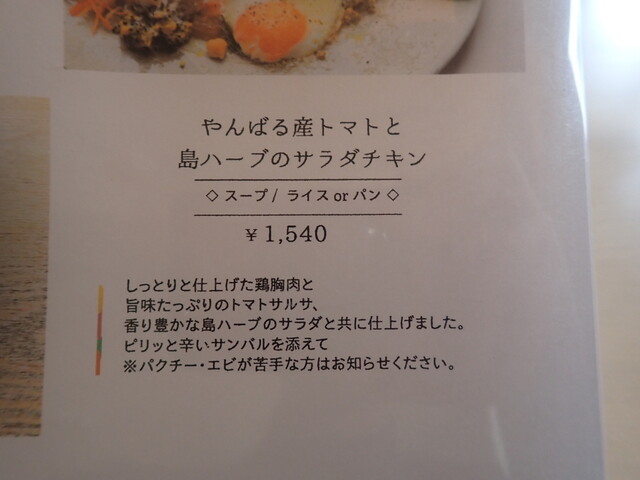 やんばる産トマトと
島ハーブのサラダチキン
◇ スープ / ライス or パン ◇
¥ 1,540
しっとりと仕上げた鶏胸肉と
旨味たっぷりのトマトサルサ、
香り豊かな島ハーブのサラダと共に仕上げました。
ピリッと辛いサンバルを添えて
※パクチー・エビが苦手な方はお知らせください。